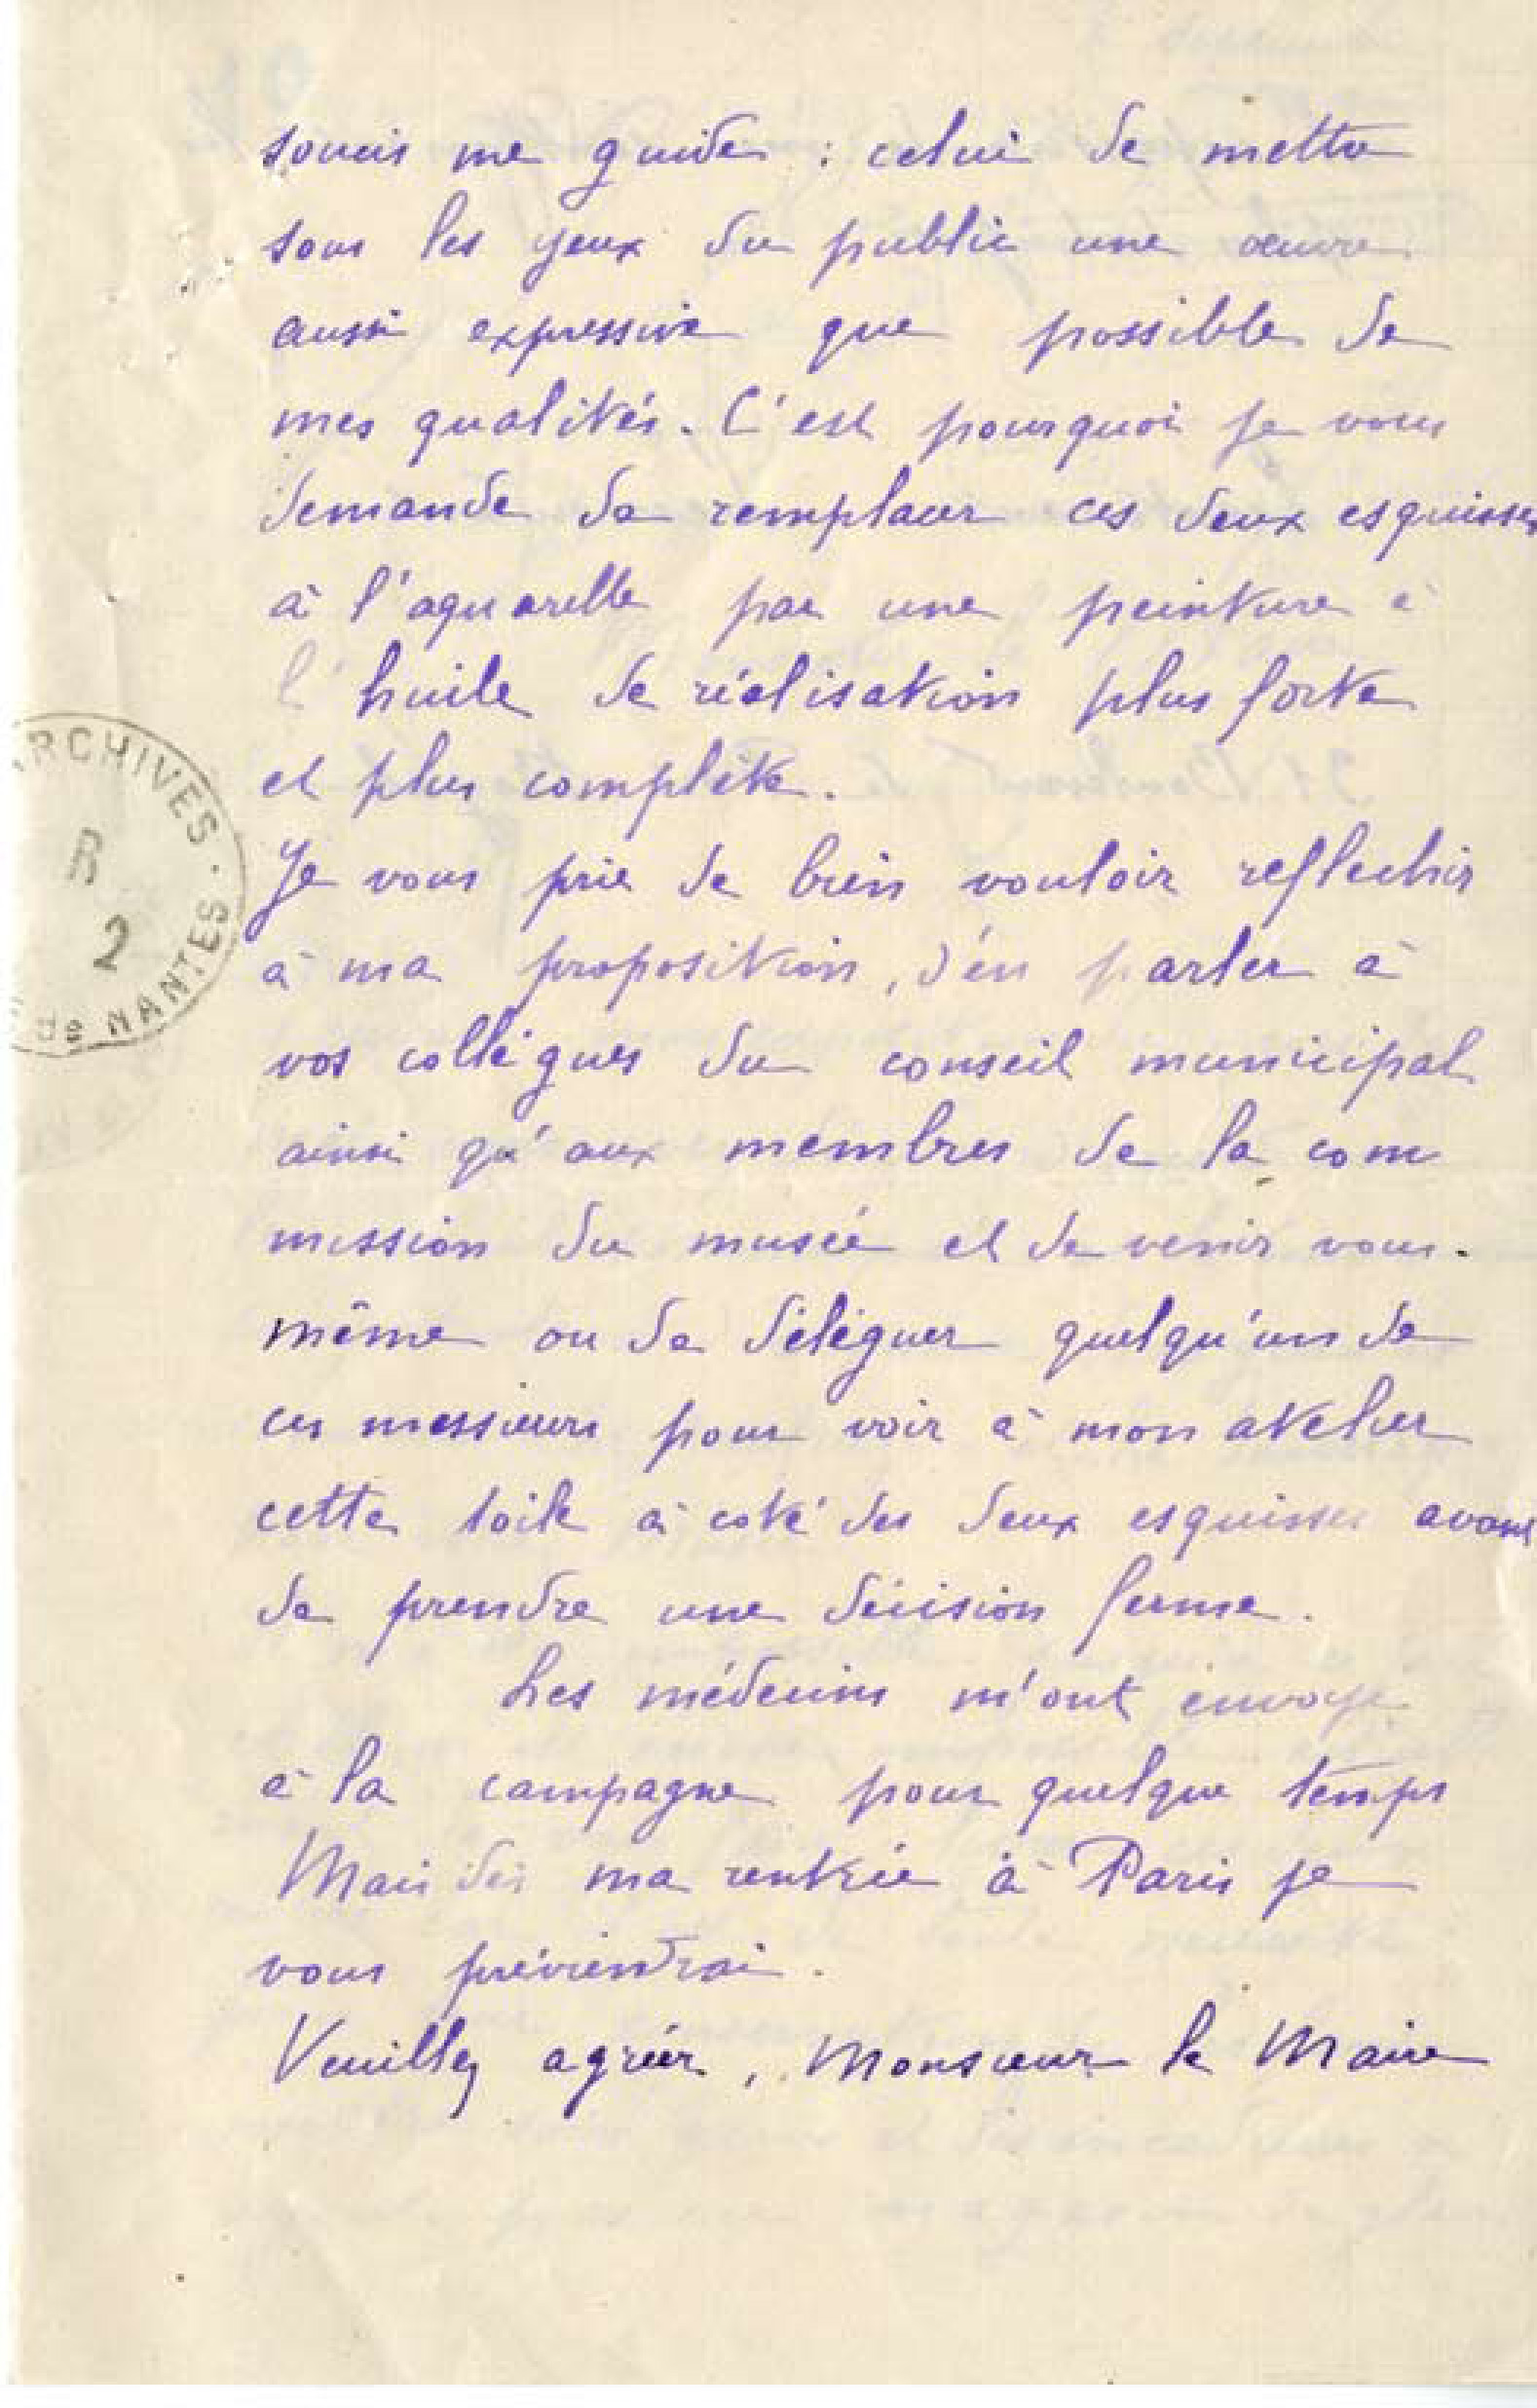 soucis me guide : celui de mettre
sous les yeux du public une œuvre
aussi expressive que possible de
mes qualités. C'est pourquoi je vous
demande de remplacer ces deux esquisses
à l'aquarelle par une peinture à
l'huile de réalisation plus forte
et plus complète.
Je vous prie de bien vouloir reflechir
à ma proposition, d'en parler à
vos collègues du conseil municipal
ainsi qu'aux membres de la com
mission du musée et de venir vous-
même ou de déléguer quelqu'un de
ces messieurs pour voir à mon atelier
cette toile à coté des deux esquisses avant
de prendre une décision ferme.
Les médecins m'ont envoyé
à la campagne pour quelque temps
Mais dès ma rentrée à Paris je
vous préviendrai.
Veuillez agréer, Monsieur le Maire
ARCHIVES
B
2
de NANTES